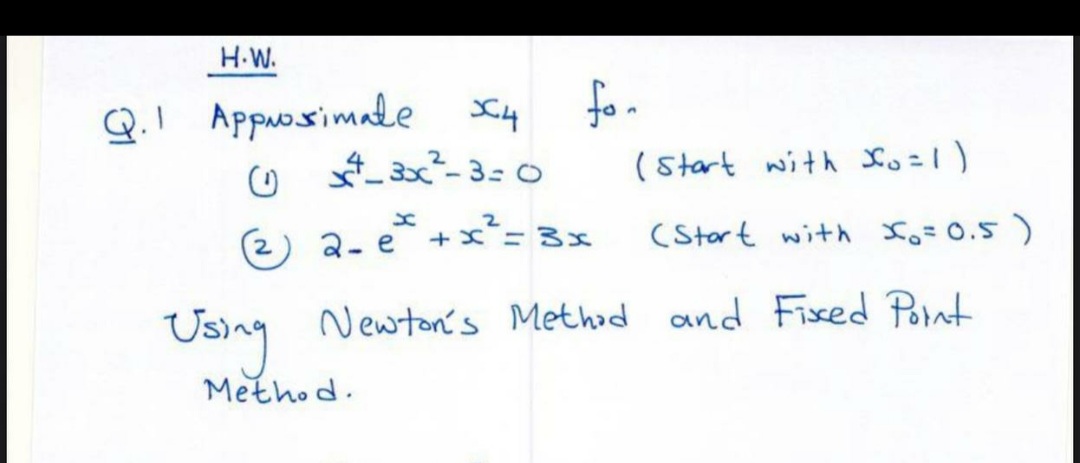 H.W.
Q.1 Approximate x₄ for
(1) x⁴-3x²-3=0 (Start with x₀=1)
(2) 2-eˣ+x²=3x (Start with x₀=0.5)
Using Newton's Method and Fixed Point
Method.